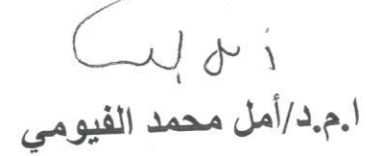 ا.م.د/أمل محمد الفيومي